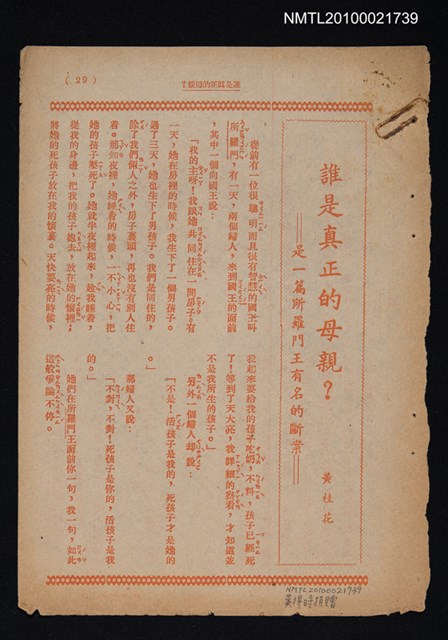 NMTL20100021739
誰是真正的母親？
(29)
誰是真正的母親？
——是一篇所羅門王有名的斷案——
黃桂花
從前有一位很聰明而且很有智慧的國王叫
所羅門，有一天，兩個婦人，來到國王的面前
，其中一個向國王說：
「我的主呀！我跟她共同住在一間房子。有
一天，她在房裡的時候，我生下了一個男孩子。
過了三天，她也生下了男孩子。我們是同住的，
除了我們倆人之外，房子裏頭，再也沒有別人住
着。那知夜裡，她睡着的時候，一不小心，把
她的孩子壓死了。她就半夜裡起來，趁我睡着，
從我的身邊，把我的孩子抱去，放在她的懷裡。
將她的死孩子放在我的懷裏。天快要亮的時候，
我起來要給我的孩子吃奶，不料，孩子已經死
了！等到了天大亮，我詳細的察看，才知道並
不是我所生的孩子。」
另外一個婦人却說：
「不是！活孩子是我的，死孩子才是她的
。」
那婦人又說：
「不對，不對！死孩子是你的，活孩子是我
的。」
她們在所羅門王面前你一句，我一句，如此
這般爭論不停。
NMTL20100021739